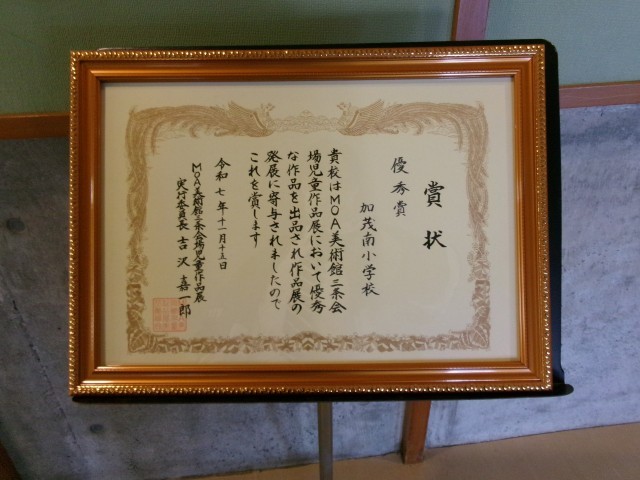 賞状
優秀賞
加茂南小学校
貴校はMOA美術館三条会
場児童作品展において優秀
な作品を出品され作品展の
発展に寄与されましたので
これを賞します
令和七年十一月十五日
MOA美術館三条会場児童作品展
実行委員長吉沢嘉一郎